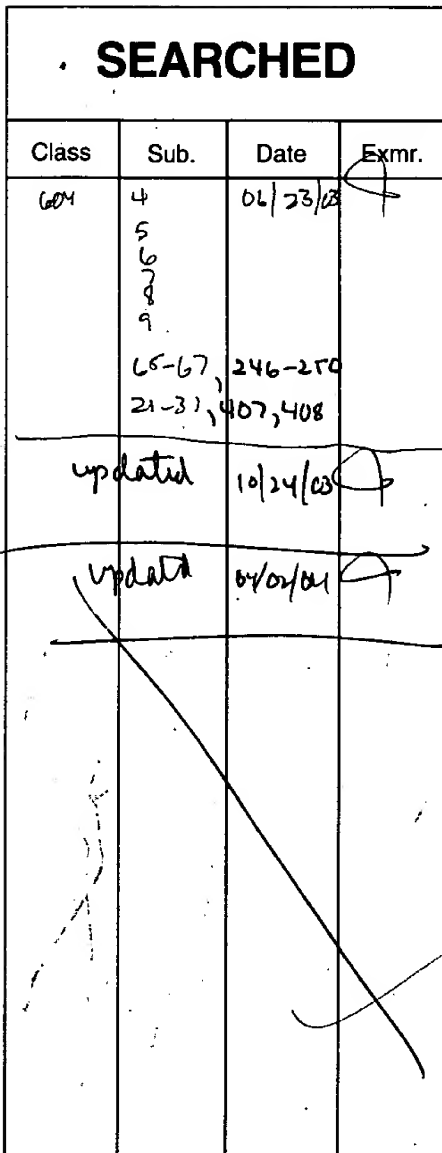 SEARCHED
Class Sub. Date Exmr.
604 4 06/23/03
5
6
7
8
9
65-67, 246-250
21-31, 407, 408
updated 10/24/03
updated 04/02/04